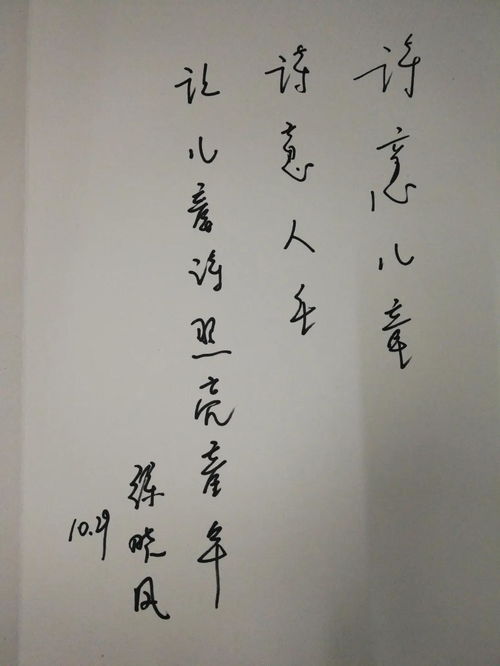 诗意儿童
诗意人生
让儿童诗照亮童年
晓凤
10.29